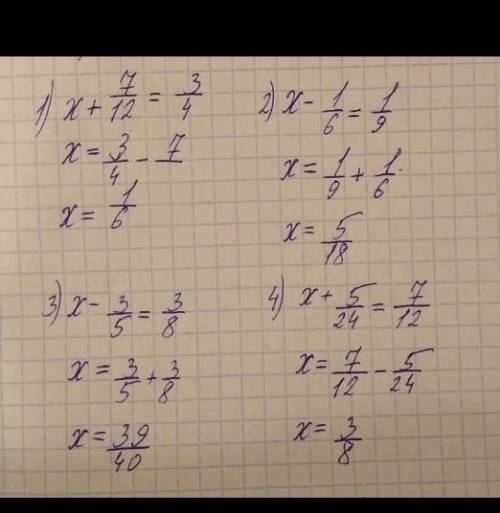 1) x + 7/12 = 3/4
x = 3/4 - 7/
x = 1/6
2) x - 1/6 = 1/9
x = 1/9 + 1/6
x = 5/18
3) x - 3/5 = 3/8
x = 3/5 + 3/8
x = 39/40
4) x + 5/24 = 7/12
x = 7/12 - 5/24
x = 3/8